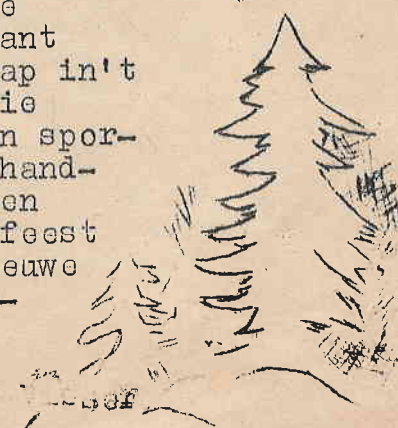 e
ant
ap in't
ie
n spor-
hand-
en
feest
euwe